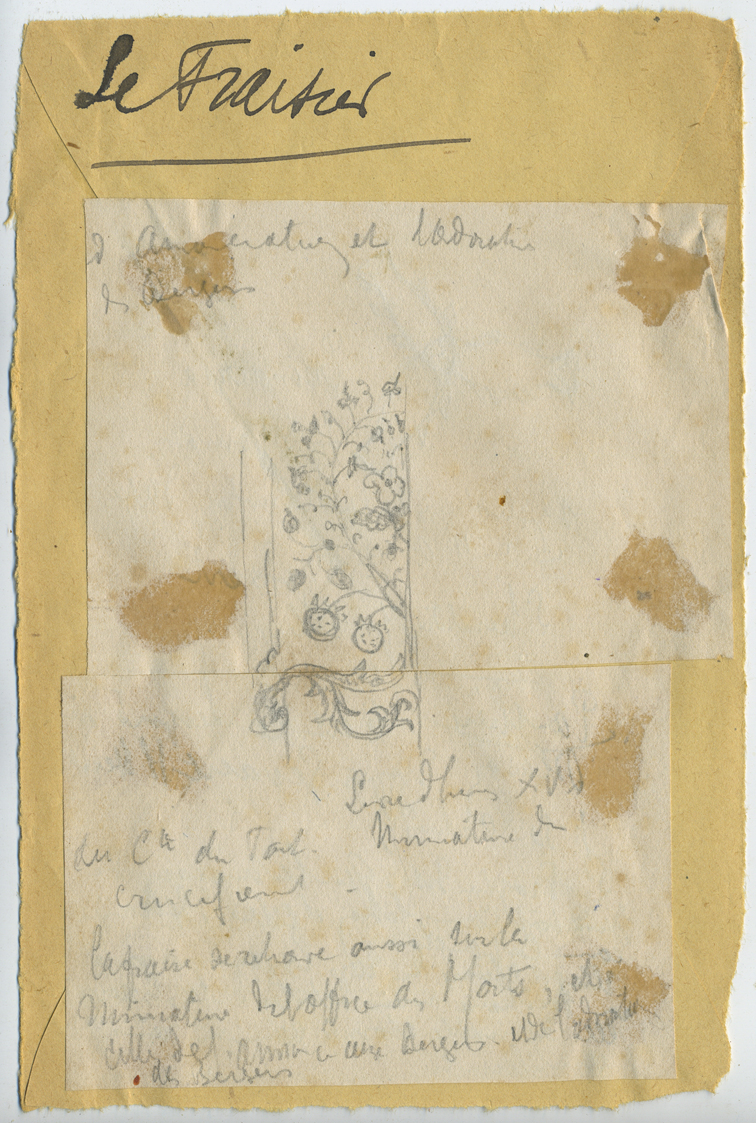 Le Fraisier
et l'Adoration
des Bergers
Livre d'heures XVe
du Cte du
Miniature du
crucifiement
la fraise se retrouve aussi sur la
Miniature de l'office des Morts, et
celle de l'annonce aux Bergers. et de l'adoration
des Bergers